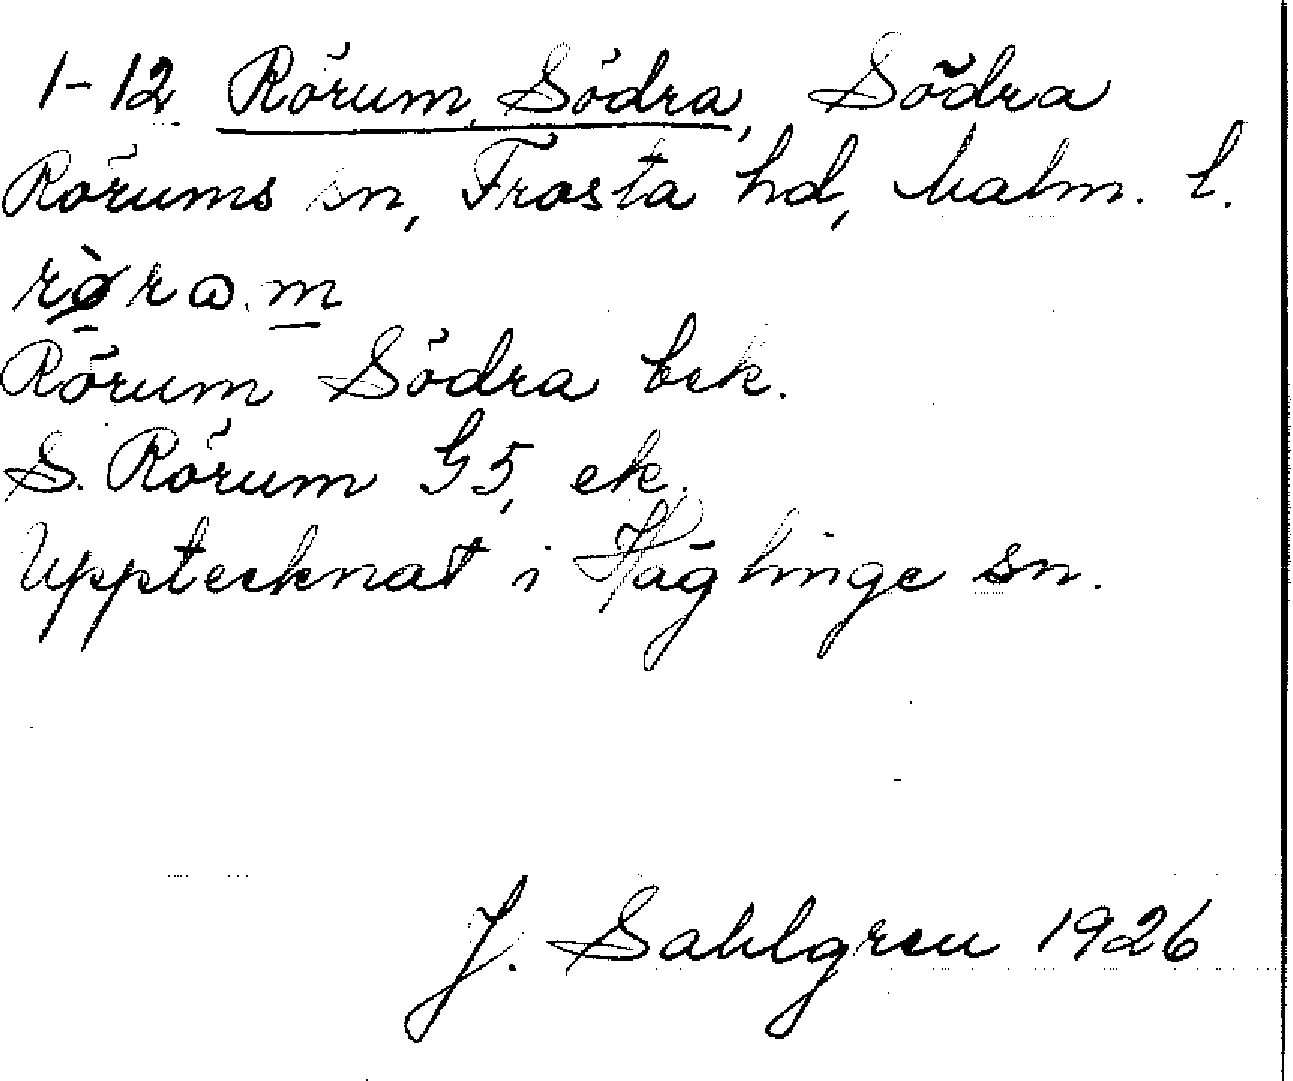 1-12 Rörum, Södra, Södra
Rörums sn, Frosta hd, Malm. l.
rø̀ram
Rörum Södra bek.
S. Rörum G5, ek.
Upptecknat i Häglinge sn.
J. Sahlgren 1926